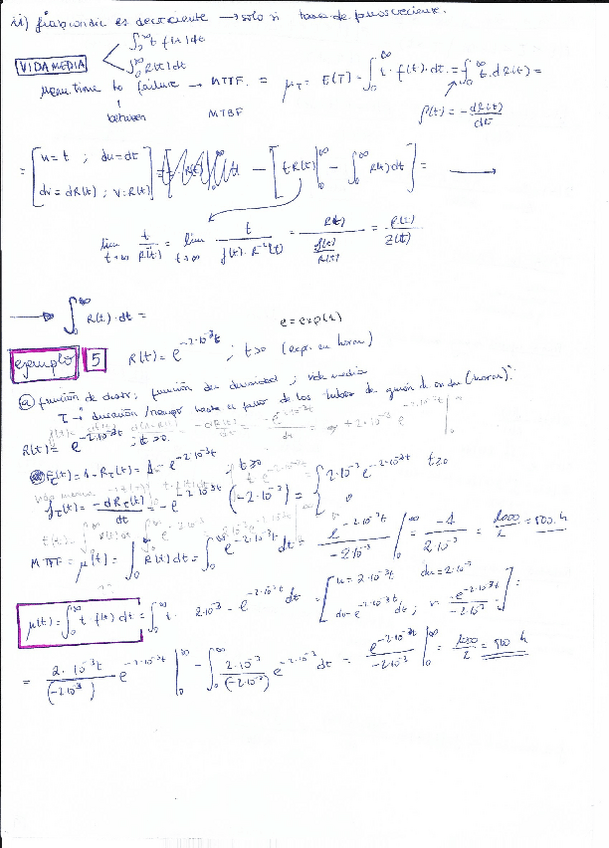 ii) fiabilidad es decreciente → solo si tasa de fallos creciente.
∫₀^∞ t f(t) dt
VIDA MEDIA
∫₀^∞ R(t) dt
Mean time to failure → MTTF = μ_T = E(T) = ∫₀^∞ t · f(t) · dt = ∫₀^∞ t · dR(t) =
between MTBF f(t) = -dR(t)/dt
= [u = t ; du = dt
dv = dR(t) ; v = R(t)] = - [t R(t) |₀^∞ - ∫₀^∞ R(t) dt] = →
lim t→∞ t/R⁻¹(t) = lim t→∞ t/(f(t) · R⁻²(t)) = R(t)/(f(t)/R(t)) = R(t)/Z(t)
→ ∫₀^∞ R(t) · dt =
e = exp(1)
ejemplo 5 R(t) = e^(-2·10⁻³t) ; t>0 (exp. en horas)
a) función de distr; función de densidad; vida media
T → duración / tiempo hasta el fallo de los tubos de guía de onda (horas):
R(t) = e^(-2·10⁻³t) ; t>0.
F_T(t) = 1 - R_T(t) = 1 - e^(-2·10⁻³t) t≥0
f_T(t) = -dR_T(t)/dt = -e^(-2·10⁻³t) (-2·10⁻³) = { 2·10⁻³ e^(-2·10⁻³t) t≥0
0
MTTF = μ(t) = ∫₀^∞ R(t) dt = ∫₀^∞ e^(-2·10⁻³t) dt = e^(-2·10⁻³t)/(-2·10⁻³) |₀^∞ = -1/(2·10⁻³) = 1000/2 = 500 h
μ(t) = ∫₀^∞ t f(t) dt = ∫₀^∞ t · 2·10⁻³ - e^(-2·10⁻³t) dt = [u = 2·10⁻³t du = 2·10⁻³
dv = e^(-2·10⁻³t) dt ; v = e^(-2·10⁻³t)/(-2·10⁻³)] =
= 2·10⁻³t/(-2·10⁻³) e^(-2·10⁻³t) |₀^∞ - ∫₀^∞ 2·10⁻³/(-2·10⁻³) e^(-2·10⁻³t) dt = e^(-2·10⁻³t)/(-2·10⁻³) |₀^∞ = 1000/2 = 500 h